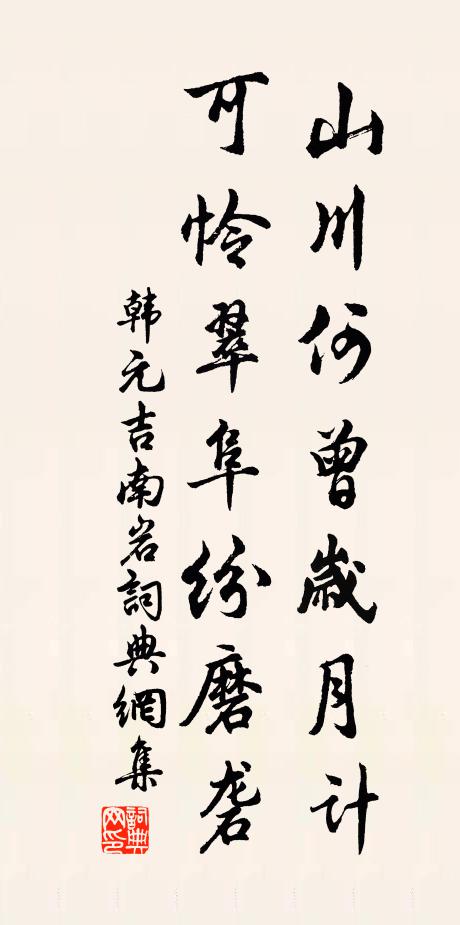 山川何曾歲月计
可怜翠阜纷磨砻
韩元吉南岩詞典網集
詞典网印